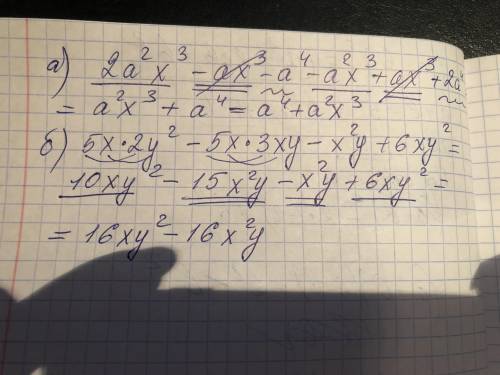 а) 2a²x³ - ax³ - a⁴ - a²x³ + ax³ + 2a⁴
= a²x³ + a⁴ = a⁴ + a²x³
б) 5x·2y² - 5x·3xy - x²y + 6xy² =
10xy² - 15x²y - x²y + 6xy² =
= 16xy² - 16x²y